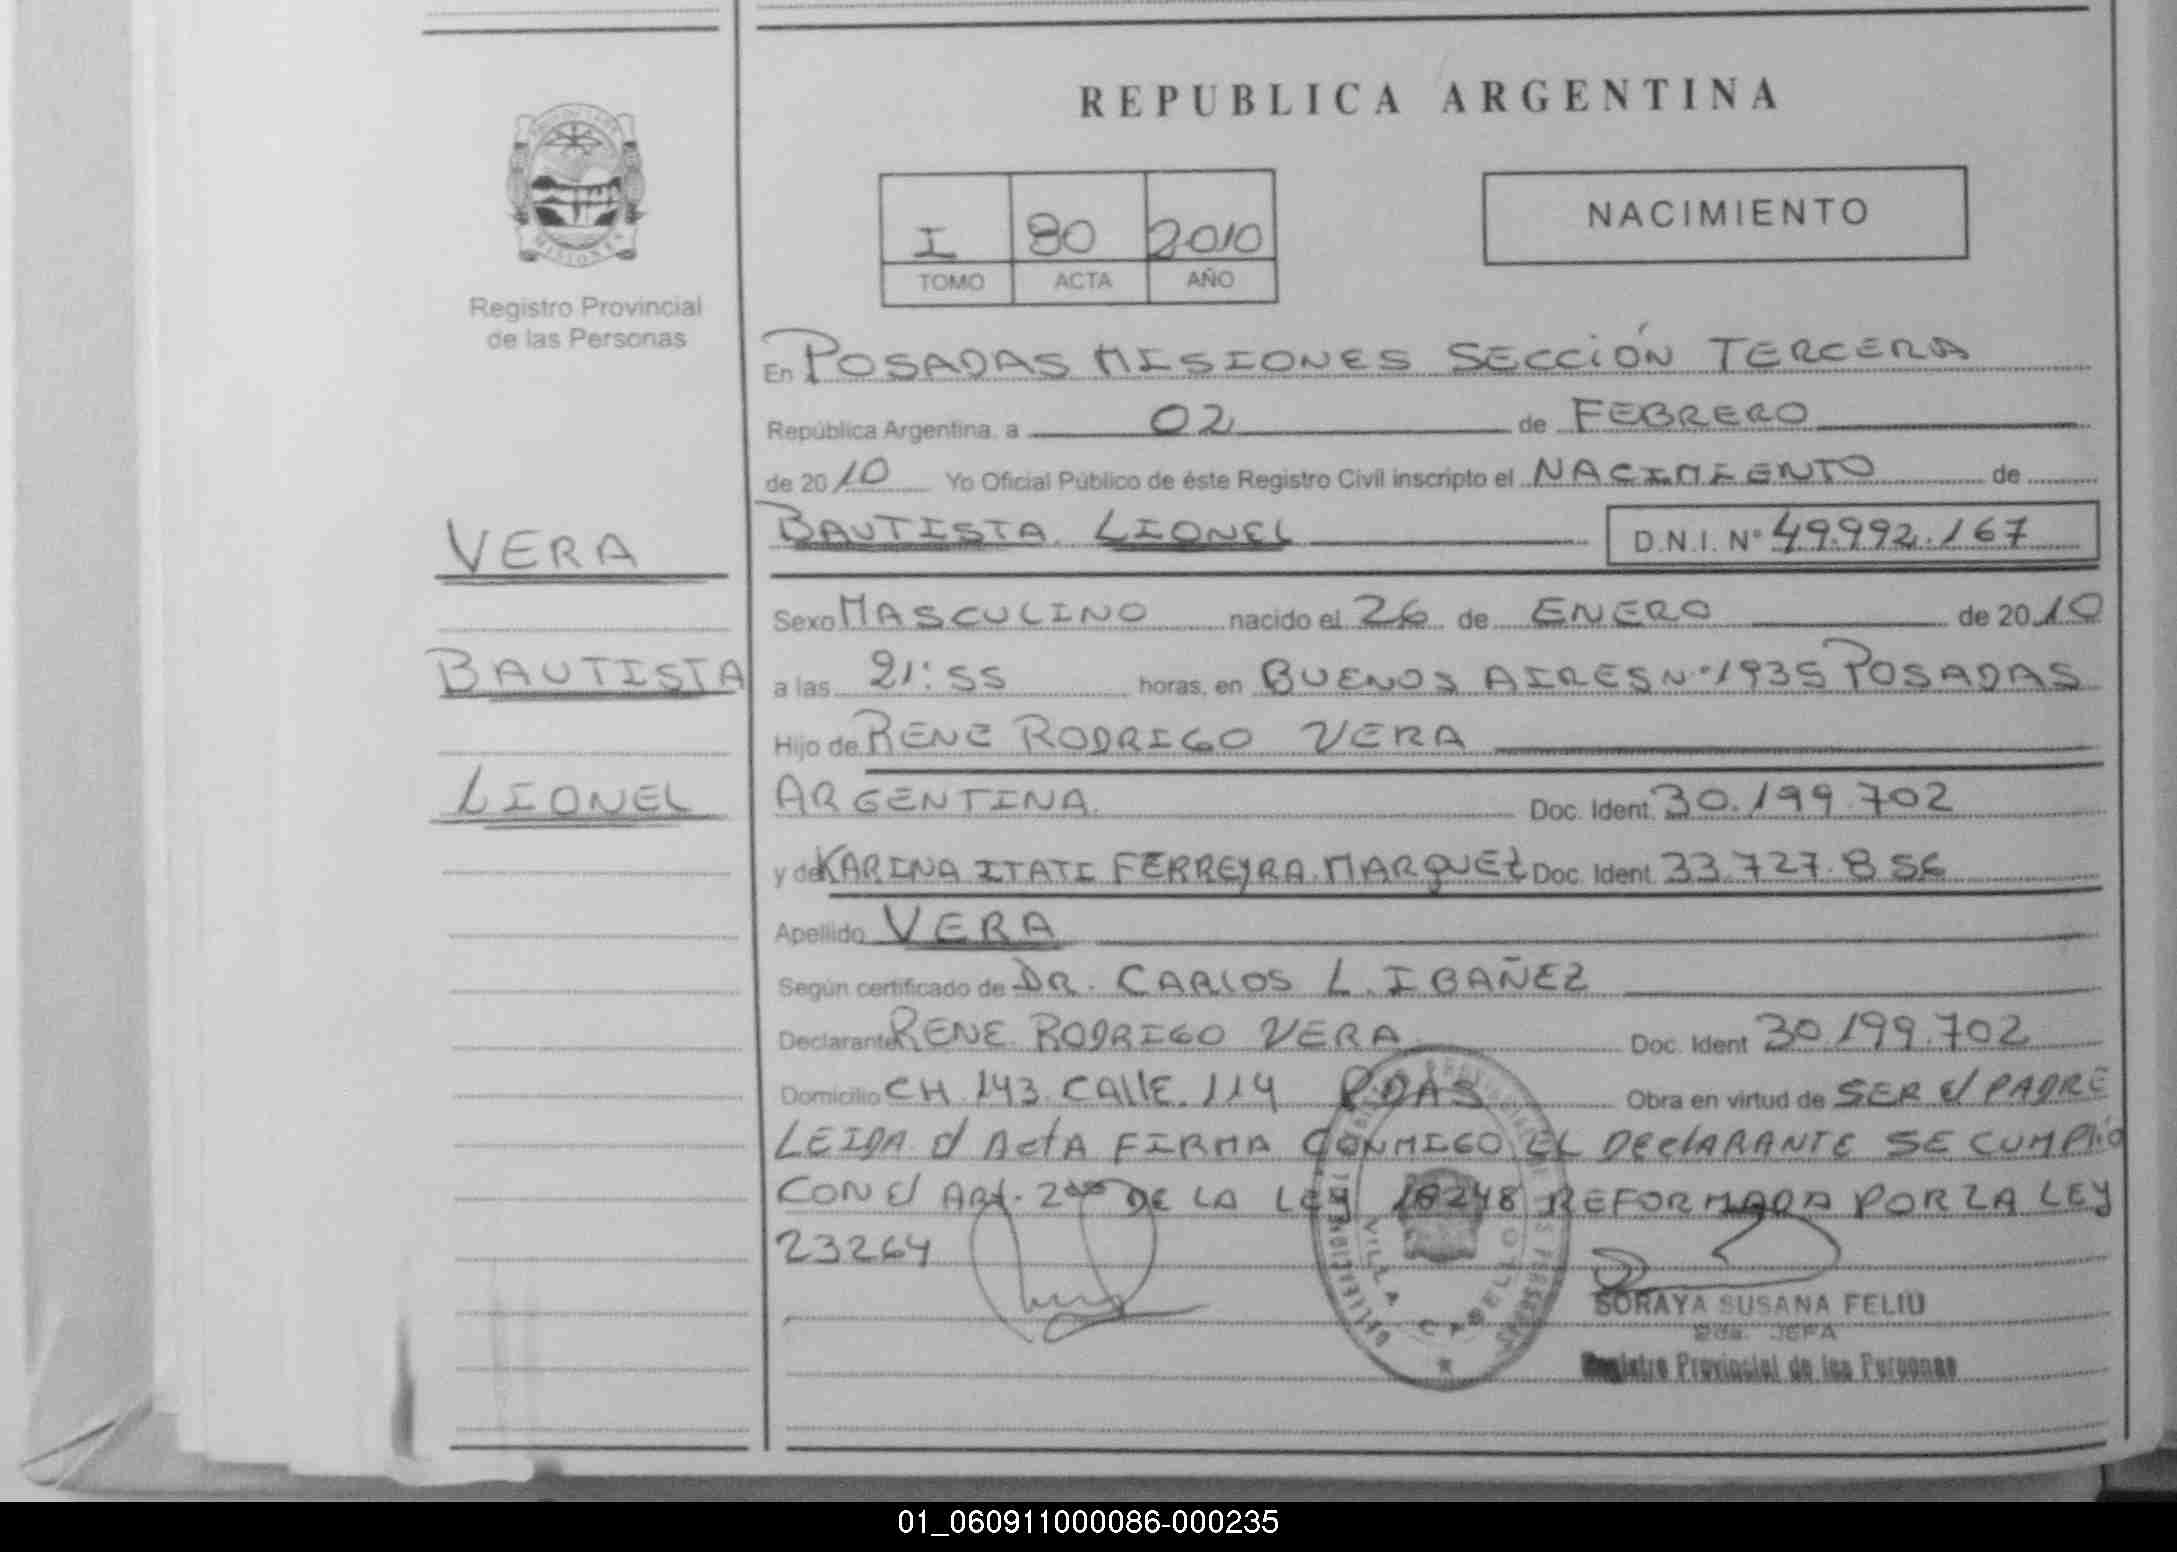 REPUBLICA ARGENTINA
MISIONES
Registro Provincial
de las Personas
I 80 2010
TOMO ACTA AÑO
NACIMIENTO
En POSADAS MISIONES SECCIÓN TERCERA
República Argentina, a 02 de FEBRERO
de 2010 Yo Oficial Público de éste Registro Civil inscripto el NACIMIENTO de
VERA
BAUTISTA LIONEL D.N.I. Nº 49.992.167
Sexo MASCULINO nacido el 26 de ENERO de 2010
BAUTISTA
a las 21:55 horas, en BUENOS AIRES Nº 1935 POSADAS
Hijo de RENE RODRIGO VERA
LIONEL
ARGENTINA Doc. Ident. 30.199.702
y de KARINA ITATI FERREYRA MARQUEZ Doc. Ident. 33.727.856
Apellido VERA
Según certificado de DR. CARLOS L. IBAÑEZ
Declarante RENE RODRIGO VERA Doc. Ident 30.199.702
Domicilio CH. 143 CALLE 114 PDAS Obra en virtud de SER el PADRE
LEIDA el ActA FIRMA CONMIGO EL DEClARANTE SE CUMPlió
CON el ARt. 2do DE LA LEY 18248 REFORMADA POR LA LEY
23264
DELEGACION VILLA CABELLO
SORAYA SUSANA FELIU
2da. JEFA
Registro Provincial de las Personas
01_060911000086-000235